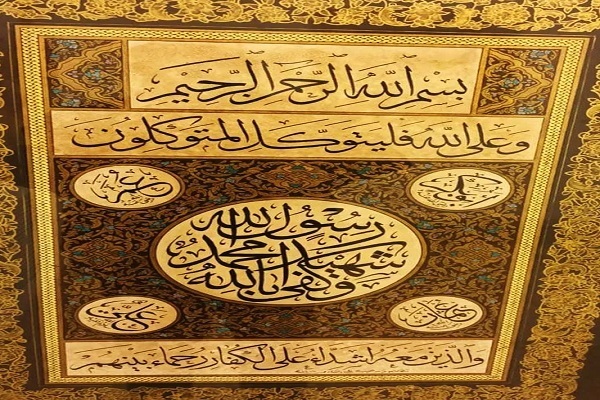 بسم الله الرحمن الرحيم
وعلى الله فليتوكل المتوكلون
ابو بكر
عمر
رسول الله
شهيدا محمد
وكفى بالله
عثمان
علي
والذين معه اشداء على الكفار رحماء بينهم